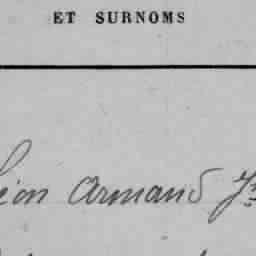 ET SURNOMS
Léon Armand